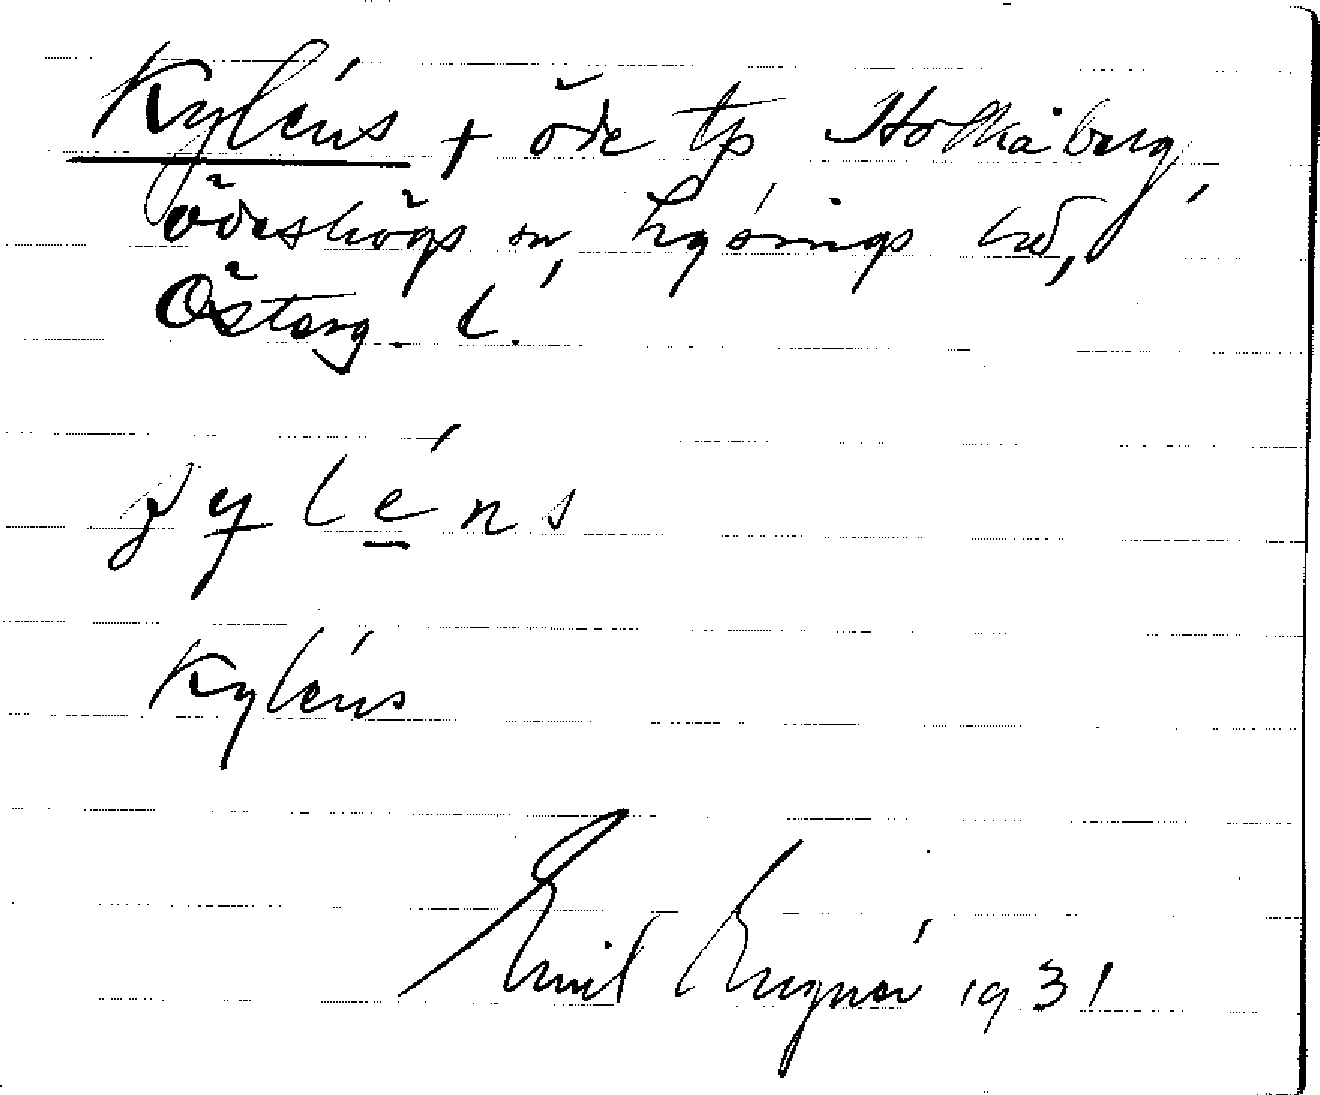 Kyléns + öde tp Holkaberg,
Ödeshögs sn, Lysings hd,
Österg. l.
yléns
Kyléns
Emil 1931